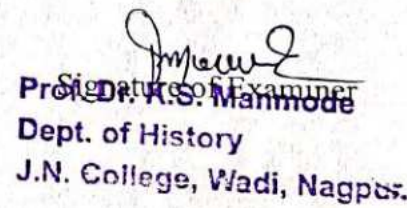 Signature of Examiner
Prof. Dr. R.S. Manmode
Dept. of History
J.N. College, Wadi, Nagpur.